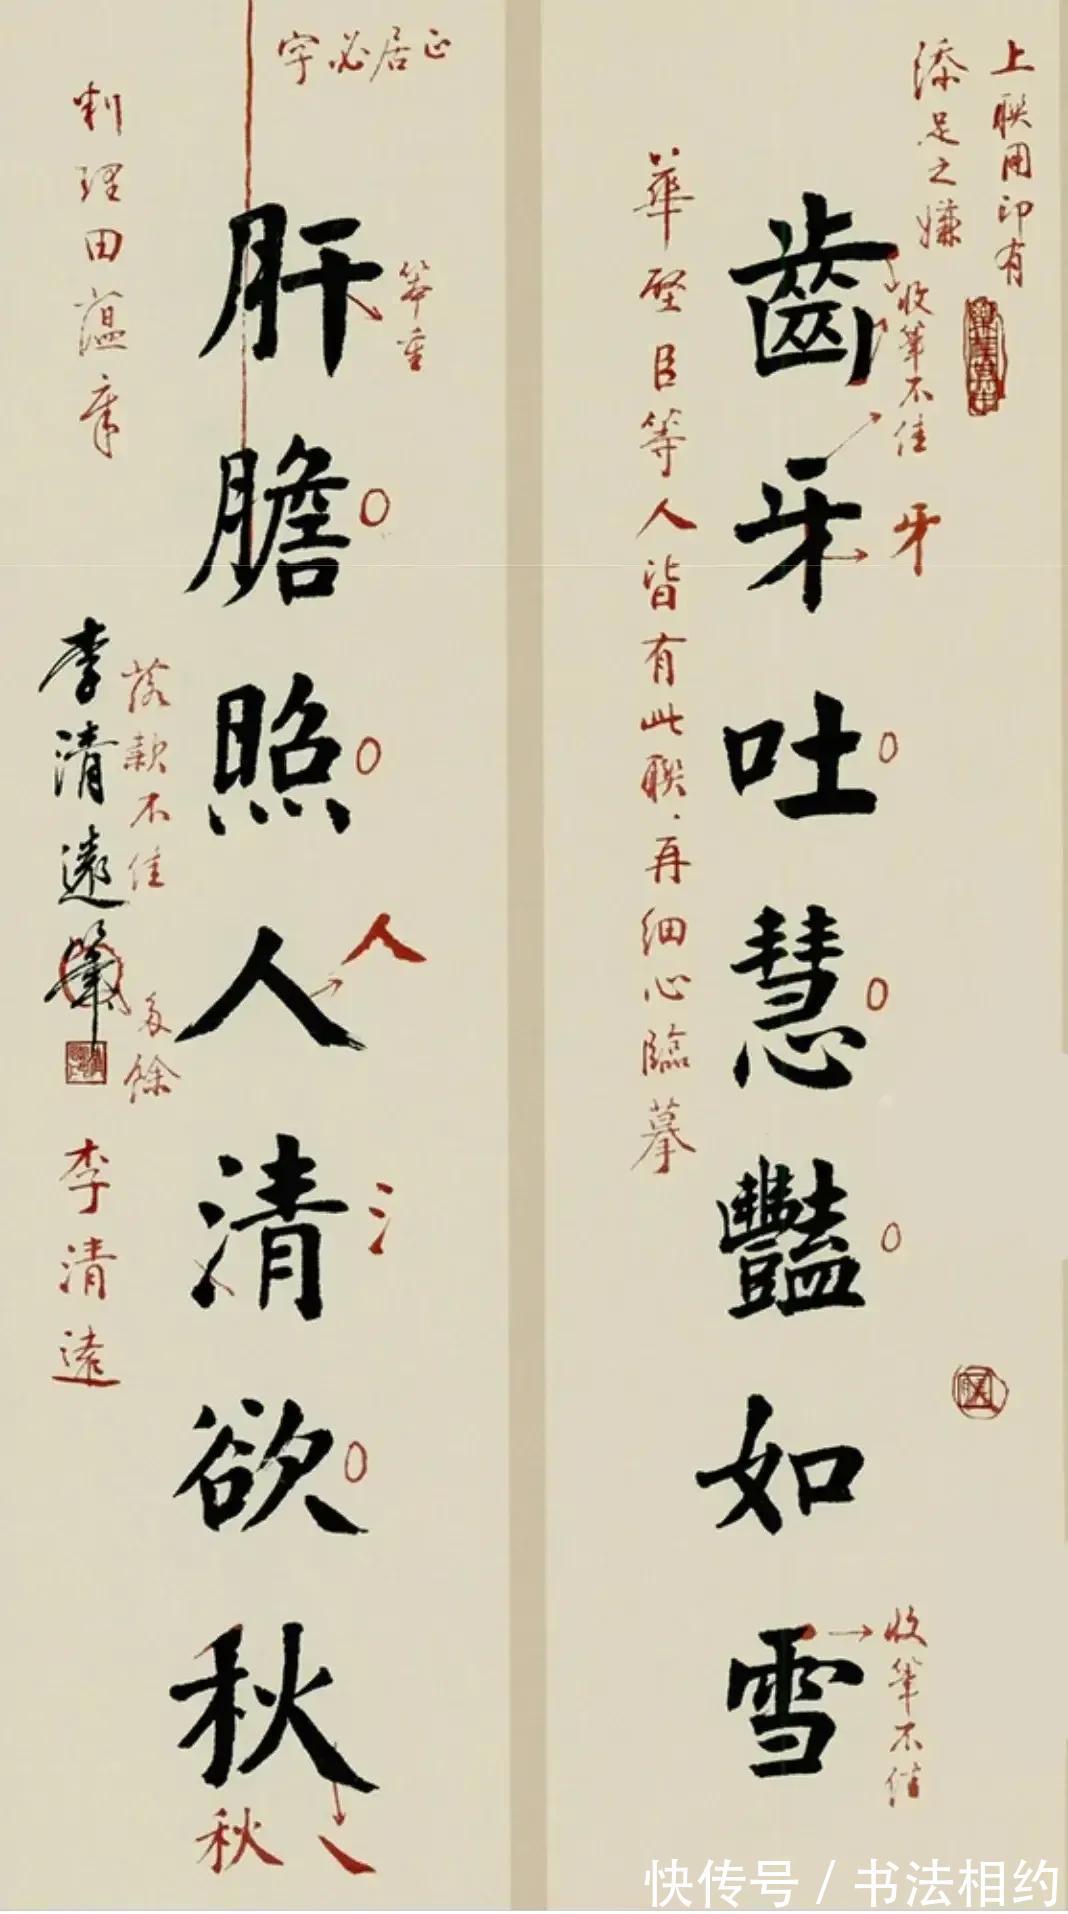 上聯用印有
添足之嫌
收筆不佳
牙
齒牙吐慧豔如雪
收筆不佳
華堅白等人皆有此聯.再细心臨摹
字必居正
筆重
人
肝膽照人清欲秋
秋
落款不佳
多餘
李清遠筆
李清遠
利理田蕴章
快传号 / 书法相约